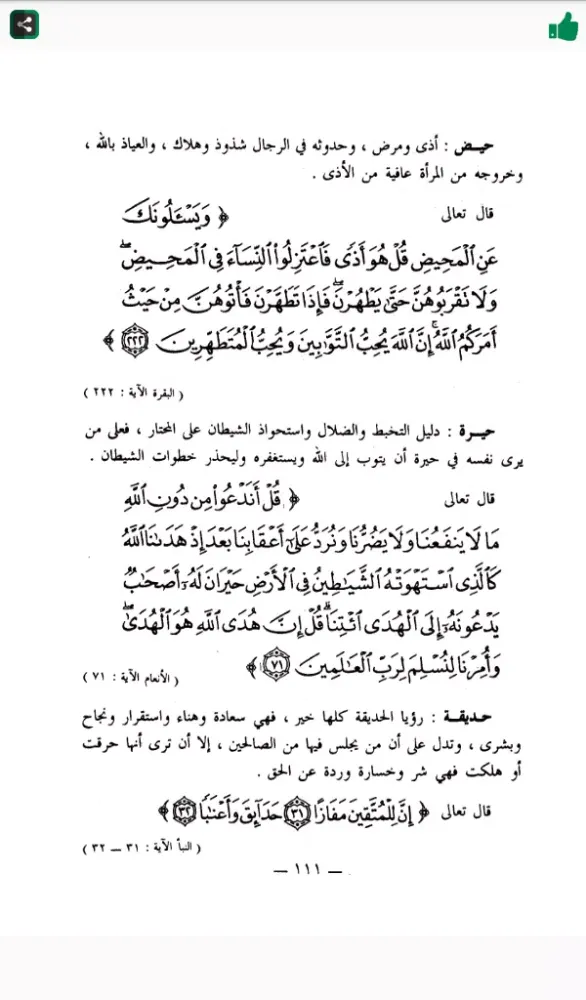 حيـض : أذى ومرض ، وحدوثه في الرجال شذوذ وهلاك ، والعياذ بالله ،
وخروجه من المرأة عافية من الأذى .
قال تعالى ﴿ وَيَسْـَٔلُونَكَ
عَنِ ٱلْمَحِيضِ قُلْ هُوَ أَذًى فَٱعْتَزِلُوا۟ ٱلنِّسَآءَ فِى ٱلْمَحِيضِ ۖ
وَلَا تَقْرَبُوهُنَّ حَتَّىٰ يَطْهُرْنَ ۖ فَإِذَا تَطَهَّرْنَ فَأْتُوهُنَّ مِنْ حَيْثُ
أَمَرَكُمُ ٱللَّهُ ۚ إِنَّ ٱللَّهَ يُحِبُّ ٱلتَّوَّٰبِينَ وَيُحِبُّ ٱلْمُتَطَهِّرِينَ ٢٢٢ ﴾
( البقرة الآية : ٢٢٢ )
حيـرة : دليل التخبط والضلال واستحواذ الشيطان على المحتار ، فعلى من
يرى نفسه في حيرة أن يتوب إلى الله ويستغفره وليحذر خطوات الشيطان .
قال تعالى ﴿ قُلْ أَنَدْعُوا۟ مِن دُونِ ٱللَّهِ
مَا لَا يَنفَعُنَا وَلَا يَضُرُّنَا وَنُرَدُّ عَلَىٰٓ أَعْقَابِنَا بَعْدَ إِذْ هَدَىٰنَا ٱللَّهُ
كَٱلَّذِى ٱسْتَهْوَتْهُ ٱلشَّيَٰطِينُ فِى ٱلْأَرْضِ حَيْرَانَ لَهُۥٓ أَصْحَٰبٌ
يَدْعُونَهُۥٓ إِلَى ٱلْهُدَى ٱئْتِنَا ۗ قُلْ إِنَّ هُدَى ٱللَّهِ هُوَ ٱلْهُدَىٰ ۖ
وَأُمِرْنَا لِنُسْلِمَ لِرَبِّ ٱلْعَٰلَمِينَ ٧١ ﴾ ( الأنعام الآية : ٧١ )
حديقـة : رؤيا الحديقة كلها خير ، فهي سعادة وهناء واستقرار ونجاح
وبشرى ، وتدل على أن من يجلس فيها من الصالحين ، إلا أن ترى أنها حرقت
أو هلكت فهي شر وخسارة وردة عن الحق .
قال تعالى ﴿ إِنَّ لِلْمُتَّقِينَ مَفَازًا ٣١ حَدَآئِقَ وَأَعْنَٰبًا ٣٢ ﴾
( النبأ الآية : ٣١ ــ ٣٢ )
ــ ١١١ ــ